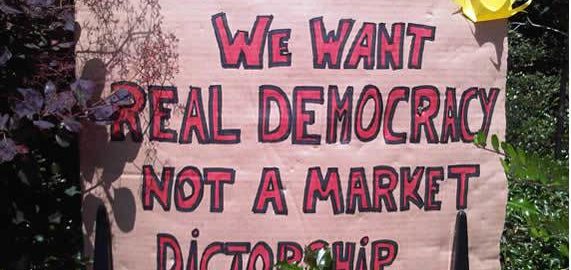 WE WANT
REAL DEMOCRACY
NOT A MARKET
DiCTORSHiP